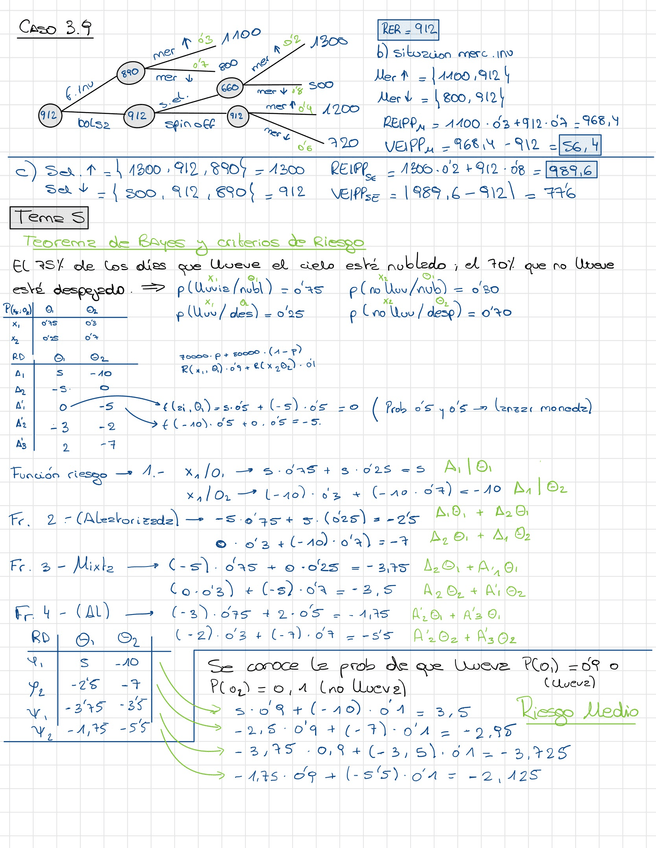 CASO 3.9
mer ↑ 0'3 1100
mer ↓ 0'7 800
f. inv
890
912
bolsa
912
s.el.
660
mer ↑ 0'2 1300
mer ↓ 0'8 500
spin off
912
mer ↑ 0'4 1200
mer ↓ 0'6 720
RER = 912
b) situación merc. inv
Mer ↑ = {1100, 912}
Mer ↓ = {800, 912}
REIPP_M = 1100 · 0'3 + 912 · 0'7 = 968,4
VEIPP_M = 968,4 - 912 = 56,4
c) Sel. ↑ = {1300, 912, 890} = 1300
Sel ↓ = {500, 912, 890} = 912
REIPP_SE = 1300 · 0'2 + 912 · 0'8 = 989,6
VEIPP_SE = |989,6 - 912| = 77'6
Tema 5
Teorema de BAyes y criterios de Riesgo
El 75% de los días que llueve el cielo está nublado ; el 70% que no llueve
está despejado. ⇒ p(lluvia/nubl) = 0'75 p(no lluv/nub) = 0'30
p(lluv/des) = 0'25 p(no lluv/desp) = 0'70
P(x₁,θ₂) θ₁ θ₂
x₁ 0'75 0'3
x₂ 0'25 0'7
RD θ₁ θ₂
A₁ 5 -10
A₂ -5 0
A'₁ 0 -5
A'₂ -3 -2
A'₃ 2 -7
70000 · p + 80000 · (1-p)
R(x₁, θ₁) · 0'9 + R(x₂θ₂) · 0'1
f(ai, θ₁) = 5 · 0'5 + (-5) · 0'5 = 0 (Prob 0'5 y 0'5 → lanzar moneda)
f(-10) · 0'5 + 0 · 0'5 = -5.
Función riesgo → 1.- x₁/θ₁ → 5 · 0'75 + 5 · 0'25 = 5 A₁|θ₁
x₁/θ₂ → (-10) · 0'3 + (-10 · 0'7) = -10 A₁|θ₂
Fr. 2 - (Aleatorizada) → -5 · 0'75 + 5 · (0'25) = -2'5 A₁θ₁ + A₂θ₁
0 · 0'3 + (-10) · 0'7) = -7 A₂θ₂ + A₁θ₂
Fr. 3 - Mixta → (-5) · 0'75 + 0 · 0'25 = -3,75 A₂θ₁ + A'₁θ₁
(0 · 0'3) + (-5) · 0'7 = -3,5 A₂θ₂ + A'₁θ₂
Fr. 4 - (Al) → (-3) · 0'75 + 2 · 0'5 = -1,75 A'₂θ₁ + A'₃θ₁
(-2) · 0'3 + (-7) · 0'7 = -5'5 A'₂θ₂ + A'₃θ₂
RD θ₁ θ₂
φ₁ 5 -10
φ₂ -2'5 -7
ψ₁ -3'75 -3'5
ψ₂ -1,75 -5'5
Se conoce la prob de que llueva P(θ₁) = 0'9 o
(llueva)
P(θ₂) = 0,1 (no llueva)
5 · 0'9 + (-10) · 0'1 = 3,5 Riesgo Medio
-2,5 · 0'9 + (-7) · 0'1 = -2,95
-3,75 · 0,9 + (-3,5) · 0'1 = -3,725
-1,75 · 0'9 + (-5'5) · 0'1 = -2,125